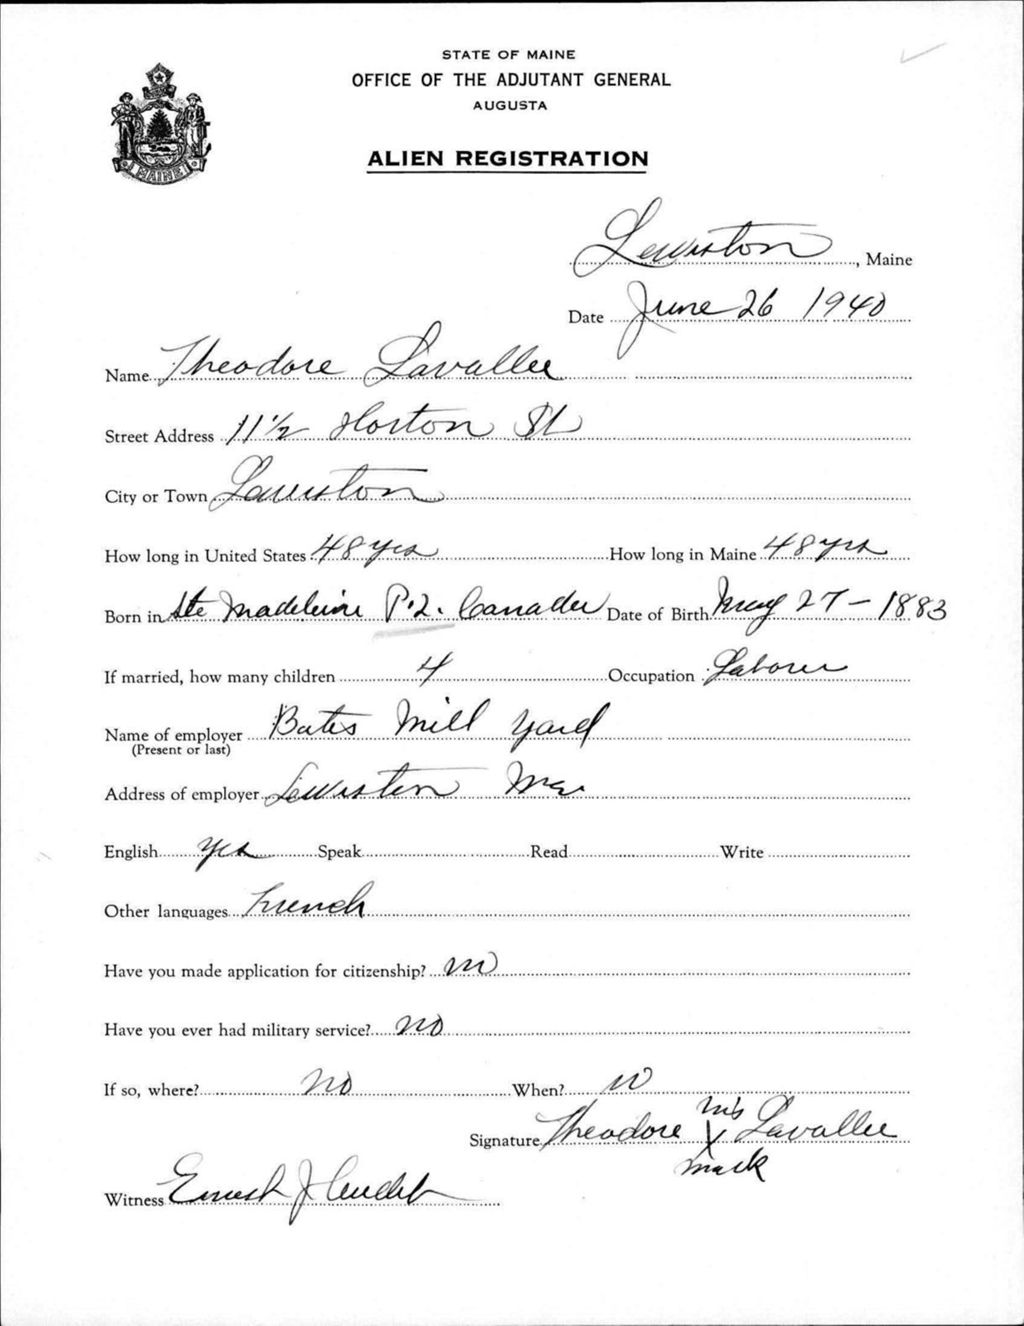 STATE OF MAINE
OFFICE OF THE ADJUTANT GENERAL
AUGUSTA
ALIEN REGISTRATION
MAINE
Lewiston, Maine
Date June 26 1940
Name Theodore Lavallee
Street Address 11 1/2 Horton St
City or Town Lewiston
How long in United States 48 yrs How long in Maine 48 yrs
Born in Ste Madeleine P.Q. Canada Date of Birth May 27 - 1883
If married, how many children 4 Occupation Laborer
Name of employer Bates Mill Yard
(Present or last)
Address of employer Lewiston Me.
English yes Speak Read Write
Other languages French
Have you made application for citizenship? no
Have you ever had military service? no
If so, where? no When? no
Signature Theodore his X mark Lavallee
Witness Ernest J